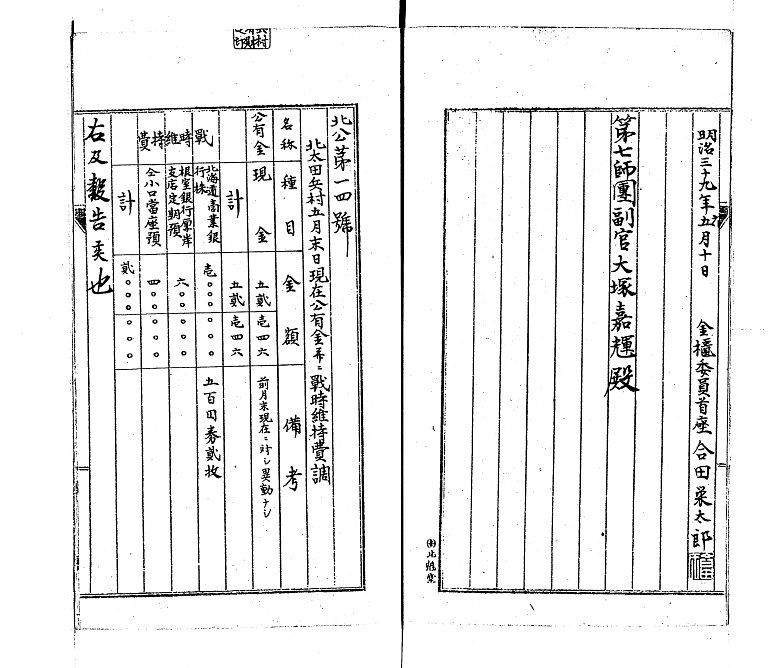 明治三十九年五月十日
金櫃委員首座 合田栄太郎
第七師團副官大塚嘉輝殿
北公第一四號
北太田兵村五月末日現在公有金並ニ戰時維持費調
名称 種目 金額 備考
公有金 現金 五貳 壱四六 前月末現在ニ対シ異動ナシ
計 五貳 壱四六
戰時維持費
北海道商業銀行株 壱〇〇〇 〇〇〇 五百円券貳枚
根室銀行厚岸支店定期預 六〇〇 〇〇〇
仝小口當座預 四〇〇 〇〇〇
計 貳〇〇〇 〇〇〇
右及報告候也